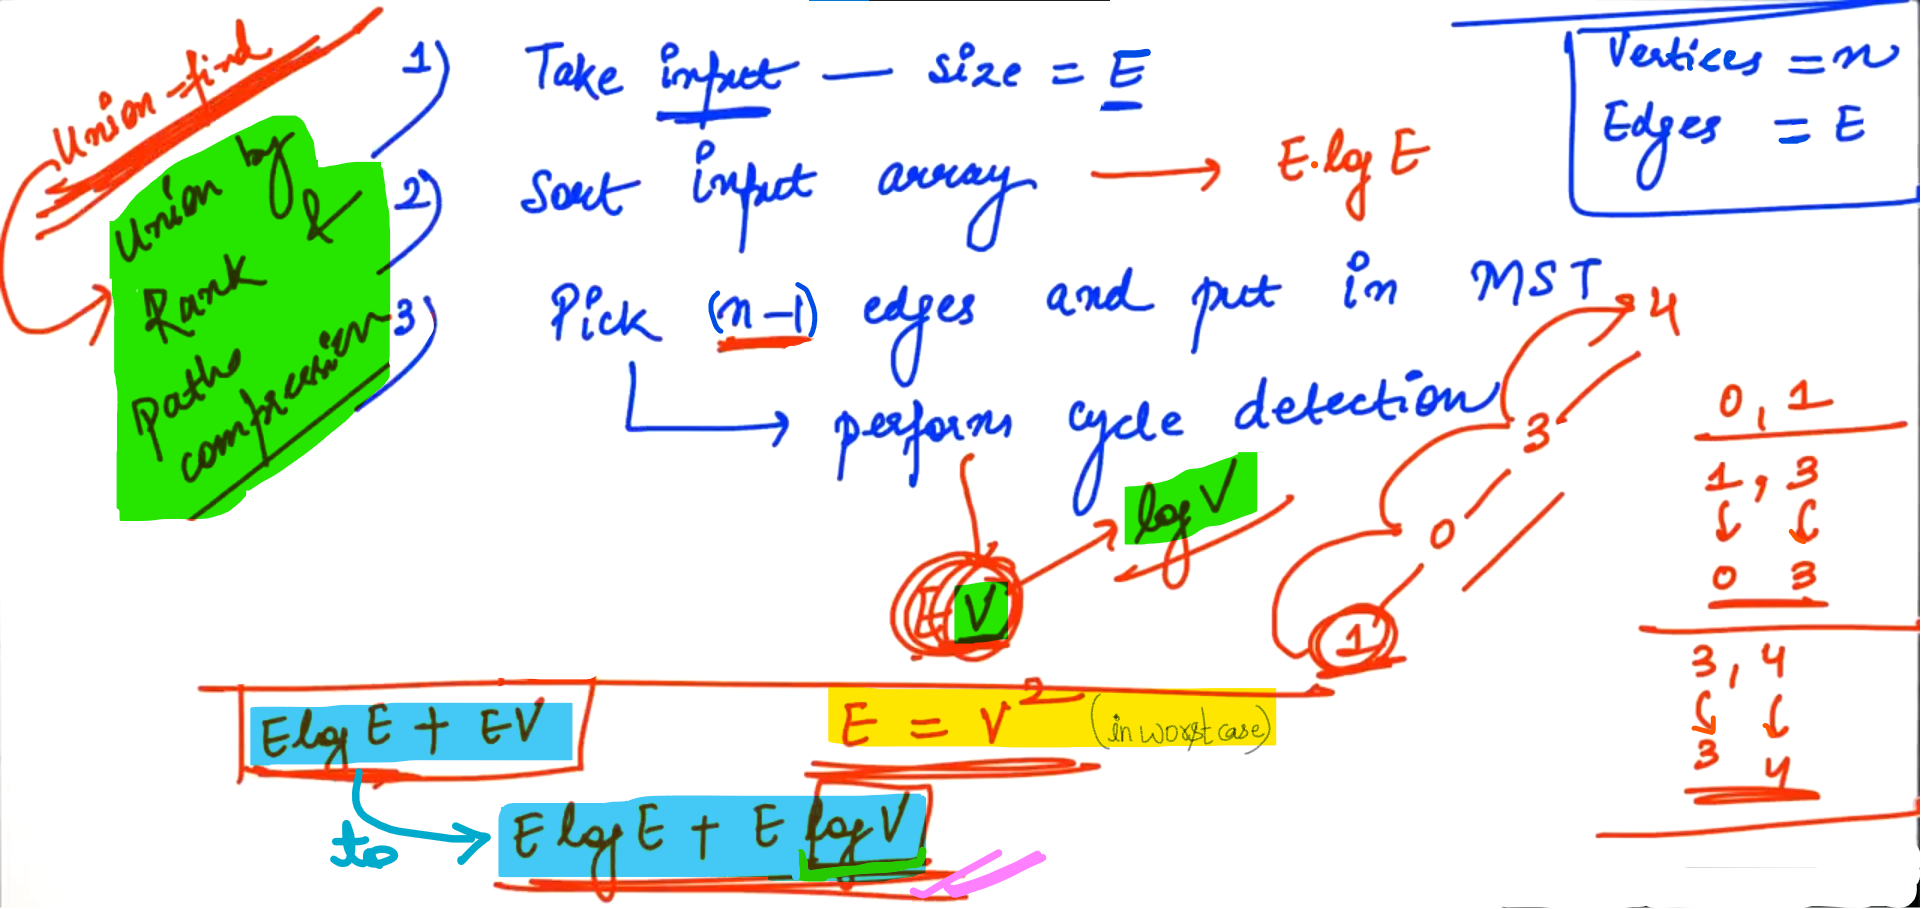 Union-find
Union by
Rank &
Path
compression
1) Take input — size = E
2) Sort input array → E.log E
3) Pick (n-1) edges and put in MST
→ perform cycle detection
E V → log V
Vertices = n
Edges = E
4
3
0
1
0, 1
1, 3
0 3
3, 4
3 4
E log E + EV
E = V² (in worst case)
to → E log E + E log V